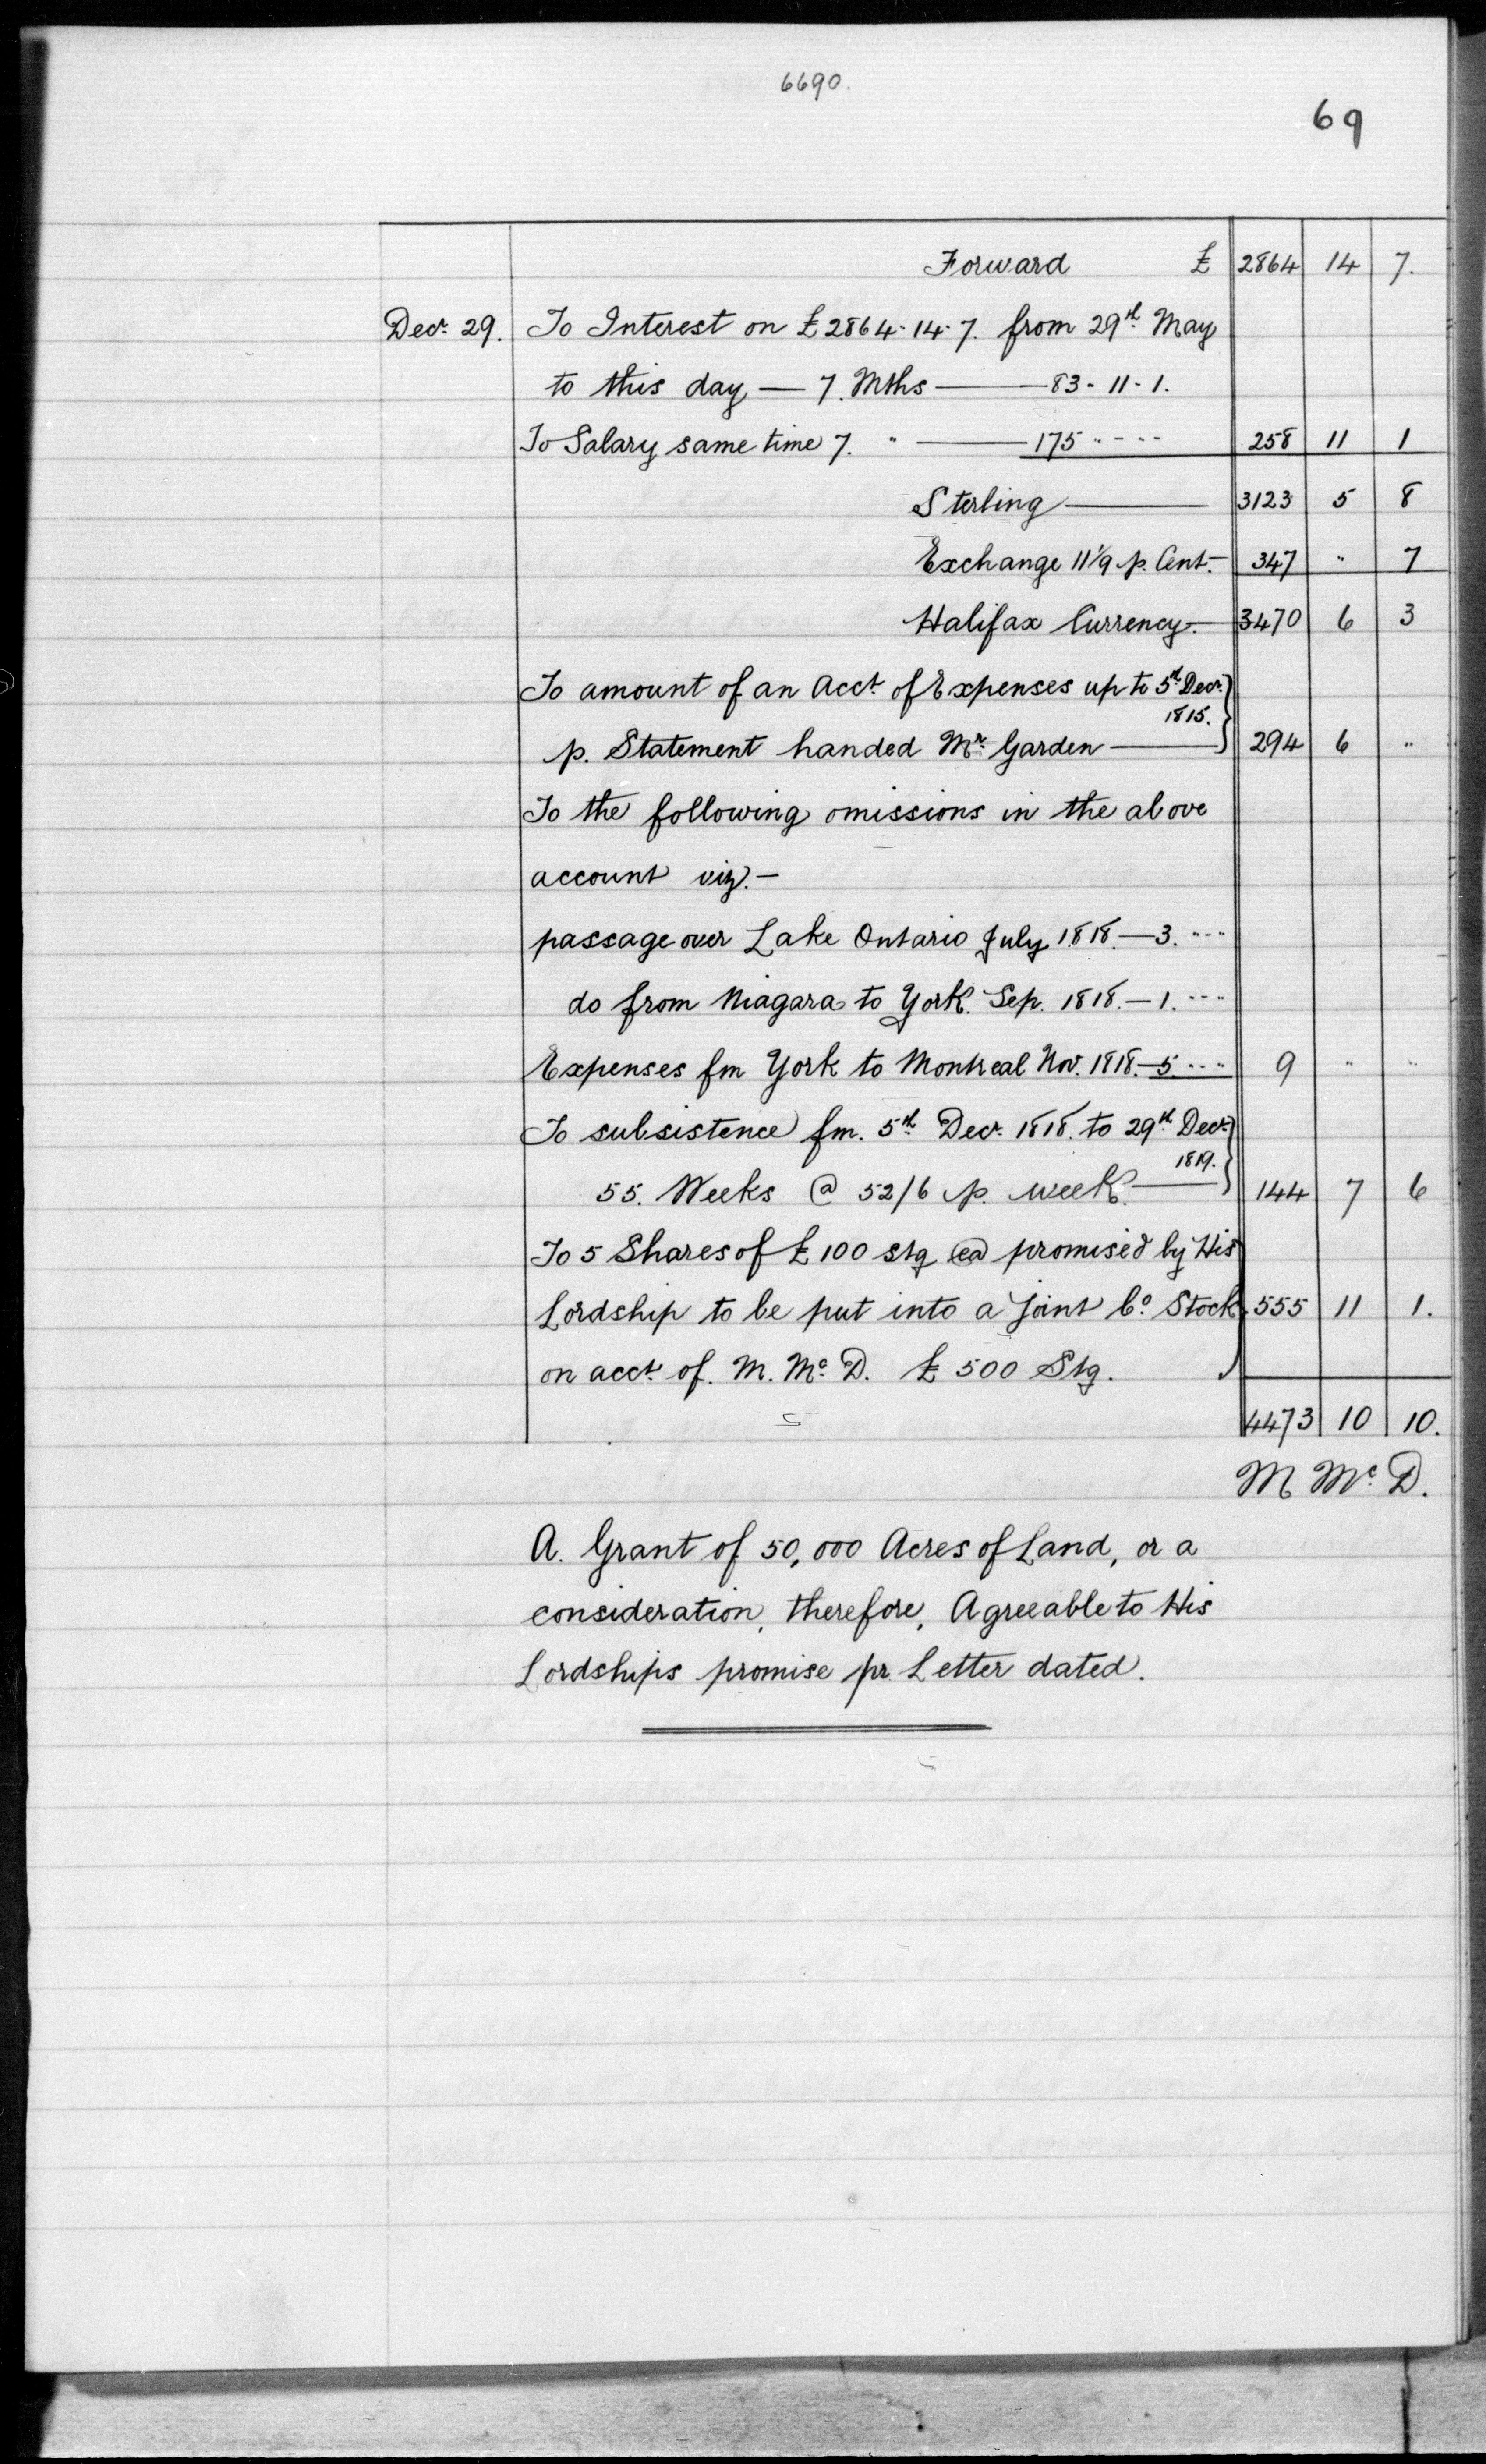 6690.
69
Forward £ 2864 14 7.
Decr. 29. To Interest on £2864-14-7. from 29th May
to this day — 7. Mths — 83-11-1.
To Salary same time 7. " — 175 " - - - 258 11 1
Sterling — 3123 5 8
Exchange 11 1/9 p. Cent. — 347 " 7
Halifax Currency. — 3470 6 3
To amount of an Acct. of Expenses up to 5th Decr.
1815.
p. Statement handed Mr. Garden — 294 6 "
To the following omissions in the above
account viz. —
passage over Lake Ontario July 1818. — 3. " - "
do from Niagara to York. Sep. 1818. — 1. " - "
Expenses fm York to Montreal Nov. 1818. — 5. " - " 9 " "
To subsistence fm. 5th Decr. 1818. to 29th Decr.
1819.
55. Weeks @ 52/6 p. week. — 144 7 6
To 5 Shares of £100 stg ea promised by His
Lordship to be put into a Joint Co. Stock 555 11 1.
on acct. of. M. Mc. D. £500 Stg.
4473 10 10.
M Mc. D.
A. Grant of 50,000 Acres of Land, or a
consideration, therefore, Agreeable to His
Lordships promise pr. Letter dated.